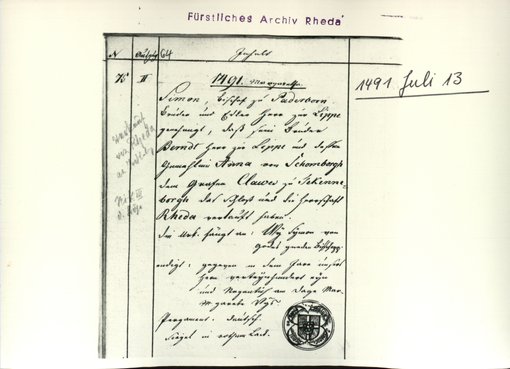 Fürstliches Archiv Rheda
N Aufschr. 64 Inhalt
1491 Juli 13
K II 1491. Margaretha.
Simon, Bischof zu Paderborn
Bruder und Edler Herr zur Lippe
genehmigt, daß sein Bruder
Berndt Herr zur Lippe und dessen
Gemahlin Anna von Schomborgh
dem Grafen Clawes zu Tekenne-
borgh das Schloß und die Herrschaft
Rheda verkauft haben.
Die Urk. fängt an: Wy Symon von
godes gnaden Bisschopp
endigt: gegeven in dem Jare unses
Hern verteynhundert eyn
und Negentich am dage Mar-
garete Virg.
Pergament. deutsch.
Siegel in rothem Lack.